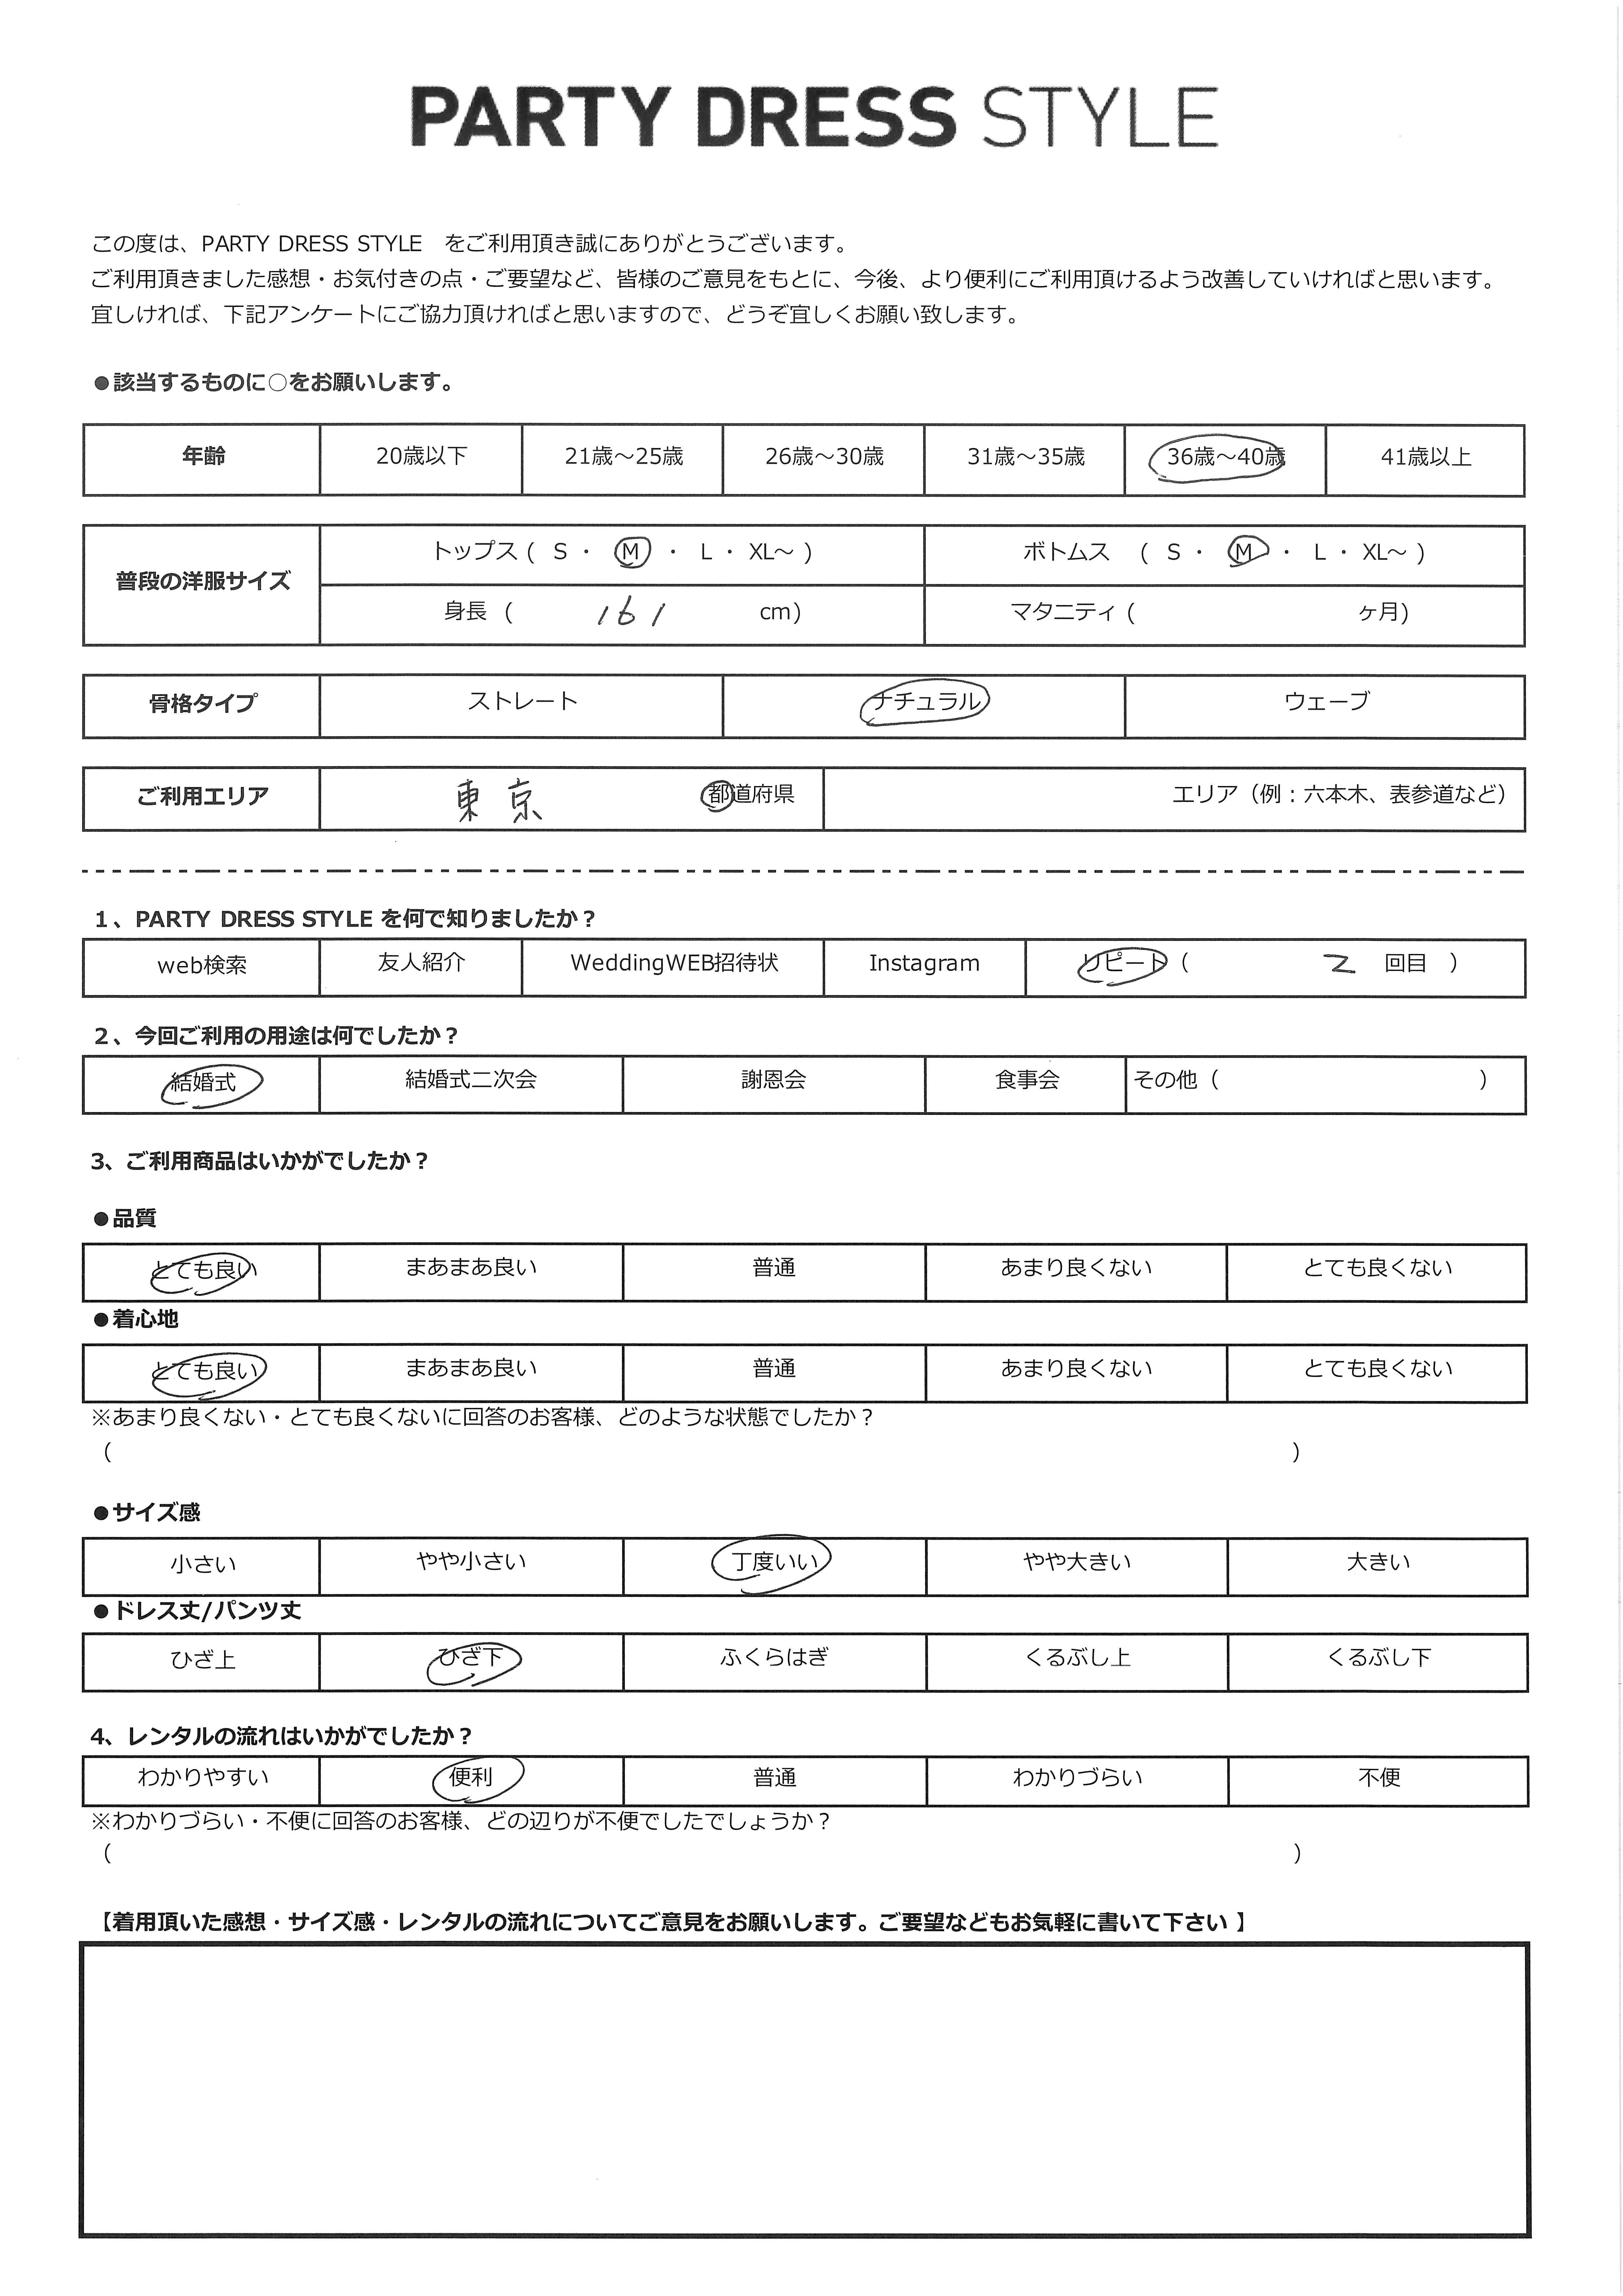 PARTY DRESS STYLE
この度は、PARTY DRESS STYLE　をご利用頂き誠にありがとうございます。
ご利用頂きました感想・お気付きの点・ご要望など、皆様のご意見をもとに、今後、より便利にご利用頂けるよう改善していければと思います。
宜しければ、下記アンケートにご協力頂ければと思いますので、どうぞ宜しくお願い致します。
●該当するものに○をお願いします。
年齢 20歳以下 21歳～25歳 26歳～30歳 31歳～35歳 36歳～40歳 41歳以上
普段の洋服サイズ トップス ( S ・ M ・ L ・ XL～ ) ボトムス ( S ・ M ・ L ・ XL～ )
身長 ( 161 cm) マタニティ ( ヶ月)
骨格タイプ ストレート ナチュラル ウェーブ
ご利用エリア 東京 都道府県 エリア（例：六本木、表参道など）
1、PARTY DRESS STYLE を何で知りましたか？
web検索 友人紹介 WeddingWEB招待状 Instagram リピート（ 2 回目 ）
2、今回ご利用の用途は何でしたか？
結婚式 結婚式二次会 謝恩会 食事会 その他（ ）
3、ご利用商品はいかがでしたか？
●品質
とても良い まあまあ良い 普通 あまり良くない とても良くない
●着心地
とても良い まあまあ良い 普通 あまり良くない とても良くない
※あまり良くない・とても良くないに回答のお客様、どのような状態でしたか？
（ ）
●サイズ感
小さい やや小さい 丁度いい やや大きい 大きい
●ドレス丈/パンツ丈
ひざ上 ひざ下 ふくらはぎ くるぶし上 くるぶし下
4、レンタルの流れはいかがでしたか？
わかりやすい 便利 普通 わかりづらい 不便
※わかりづらい・不便に回答のお客様、どの辺りが不便でしたでしょうか？
（ ）
【着用頂いた感想・サイズ感・レンタルの流れについてご意見をお願いします。ご要望などもお気軽に書いて下さい 】